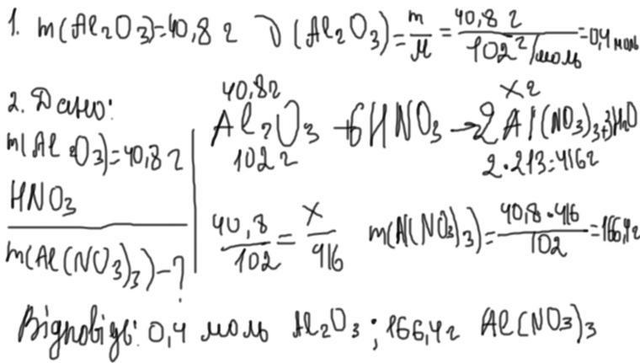 1. m(Al₂O₃)=40,8 г ν(Al₂O₃)=m/M=40,8 г/102 г/моль=0,4 моль
2. Дано:
m(Al₂O₃)=40,8 г
HNO₃
m(Al(NO₃)₃)-?
40,8г x г
Al₂O₃+6HNO₃→2Al(NO₃)₃+3H₂O
102 г 2·213=416г
40,8/102=x/416 m(Al(NO₃)₃)=40,8·416/102=166,4г
Відповідь: 0,4 моль Al₂O₃; 166,4г Al(NO₃)₃